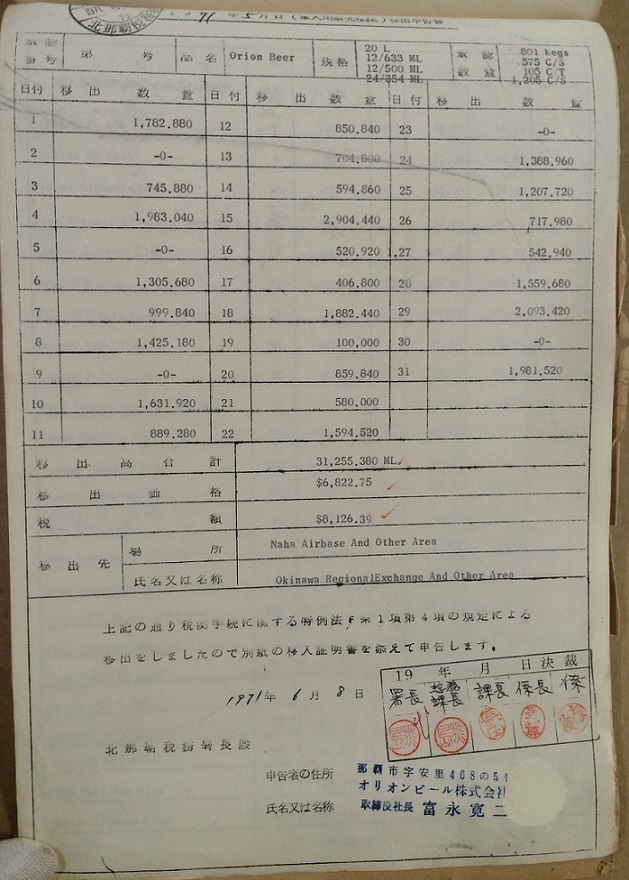 1971 年 5 月分
北那覇税務
承認番号 第 号 品名 Orion Beer 規格 20 L 12/633 ML 12/500 ML 24/354 ML 承認数量 801 Kegs 575 C/S 105 C/T 1,205 C/S
日付 移出数量 日付 移出数量 日付 移出数量
1 1,782.880 12 850.840 23 -0-
2 -0- 13 704.800 24 1,388.960
3 745.880 14 594.860 25 1,207.720
4 1,983.040 15 2,904.440 26 717.980
5 -0- 16 520.920 27 542.940
6 1,305.680 17 406.800 28 1,559.680
7 999.840 18 1,882.440 29 2,093.420
8 1,425.180 19 100,000 30 -0-
9 -0- 20 859.840 31 1,981.520
10 1,631.920 21 580.000
11 889.280 22 1,594.520
移出高合計 31,255.380 ML
移出価格 $6,822.75
税額 $8,126.39
移出先 場所 Naha Airbase And Other Area
氏名又は名称 Okinawa RegionalExchange And Other Area
上記の通り税関手続に関する特例法 条1項第4項の規定による
移出をしましたので別紙の移入証明書を添えて申告します。
19 年 月 日決裁
署長 総務課長 課長 係長 係
1971年 6月 8日
北那覇税務署長殿
申告者の住所 那覇市字安里468の5
オリオンビール株式会
氏名又は名称 取締役社長 富永寛二